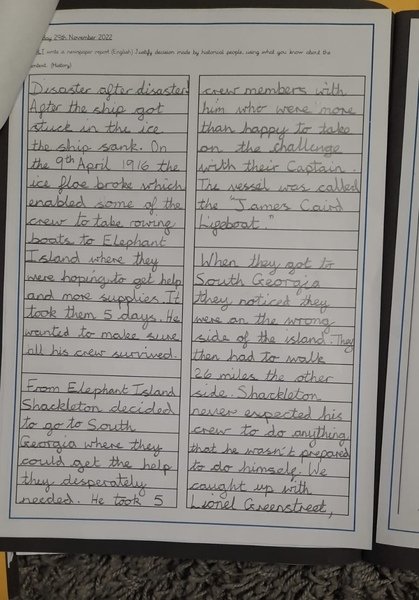 day 29th November 2022
write a newspaper report (English) Justify decision made by historical people, using what you know about the
context. (History)
Disaster after disaster.
After the ship got
stuck in the ice
the ship sank. On
the 9th April 1916 the
ice floe broke which
enabled some of the
crew to take rowing
boats to Elephant
Island where they
were hoping to get help
and more supplies. It
took them 5 days. He
wanted to make sure
all his crew survived.
From Elephant Island
Shackleton decided
to go to South
Georgia where they
could get the help
they desperately
needed. He took 5
crew members with
him who were more
than happy to take
on the challenge
with their Captain.
The vessel was called
the "James Caird
Ligeboat."
When they got to
South Georgia
they noticed they
were on the wrong
side of the island. They
then had to walk
26 miles the other
side. Shackleton
never expected his
crew to do anything
that he wasn't prepared
to do himself. We
caught up with
Lionel Greenstreet,